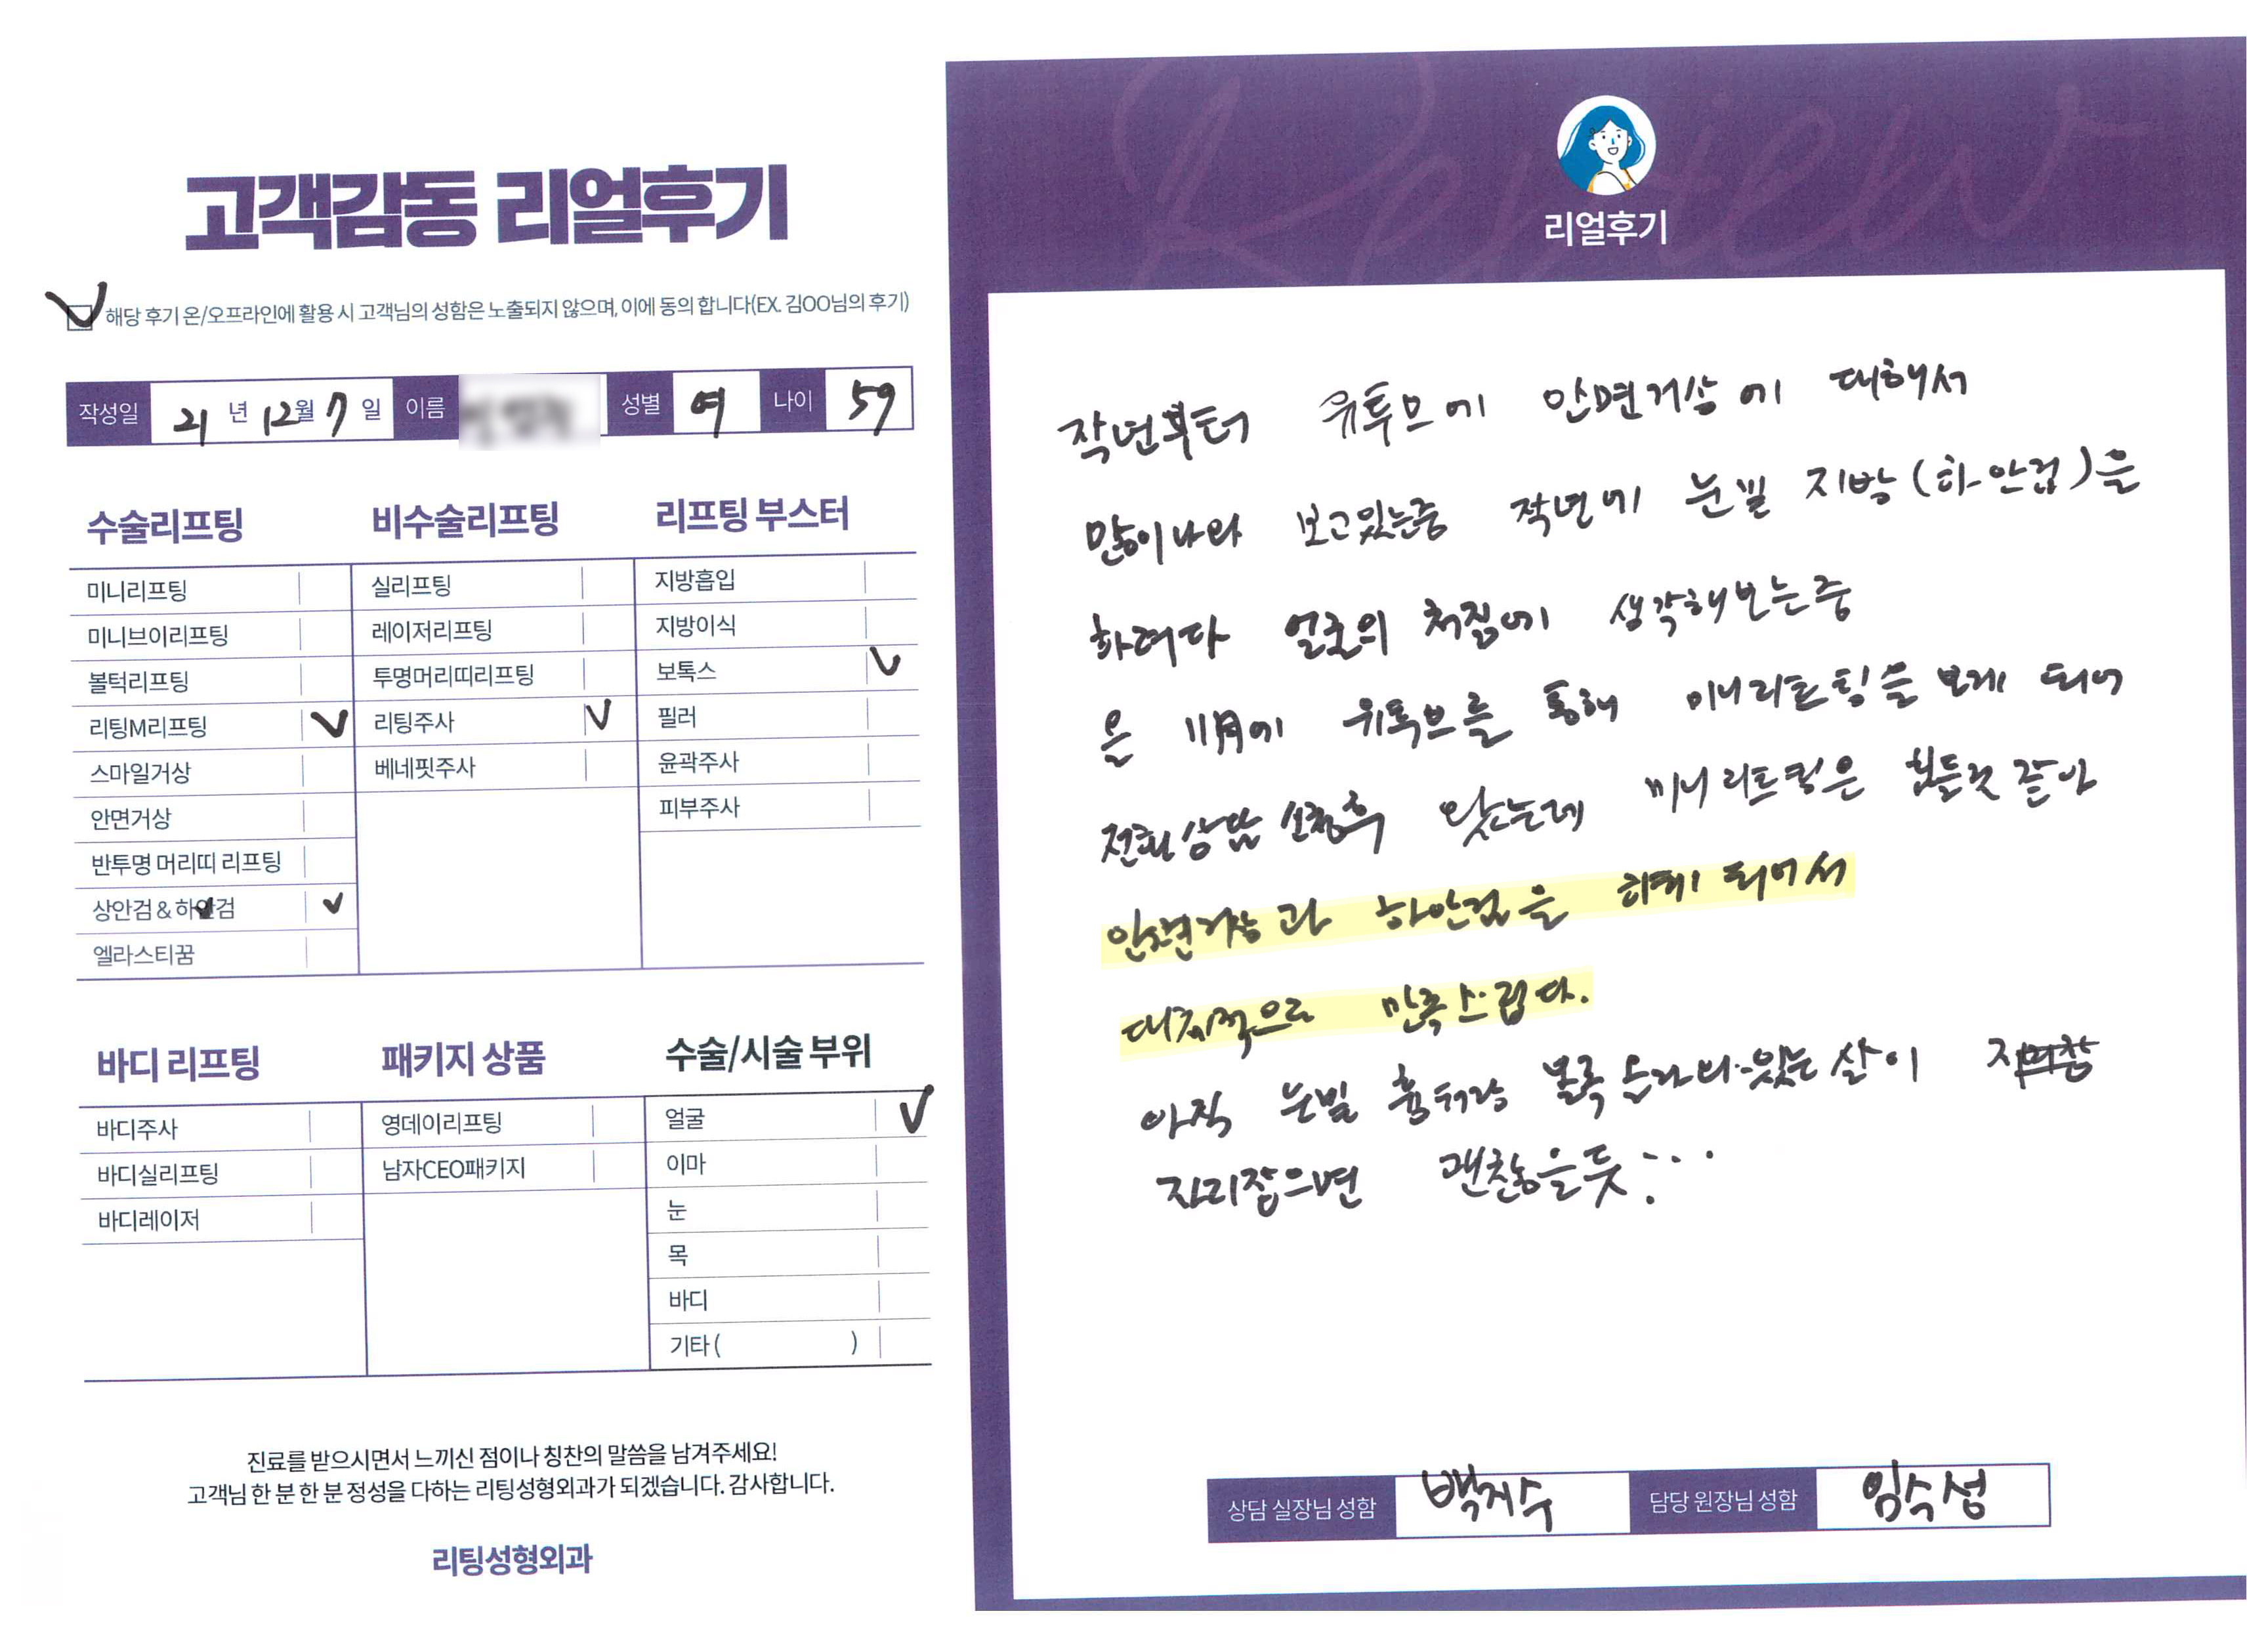 고객감동 리얼후기
해당 후기 온/오프라인에 활용 시 고객님의 성함은 노출되지 않으며, 이에 동의 합니다(EX. 김OO님의 후기)
작성일 21 년 12 월 7 일 이름 성별 여 나이 59
수술리프팅
미니리프팅
미니브이리프팅
볼턱리프팅
리팅M리프팅
스마일거상
안면거상
반투명 머리띠 리프팅
상안검 & 하안검
엘라스티꿈
비수술리프팅
실리프팅
레이저리프팅
투명머리띠리프팅
리팅주사
베네핏주사
리프팅 부스터
지방흡입
지방이식
보톡스
필러
윤곽주사
피부주사
바디 리프팅
바디주사
바디실리프팅
바디레이저
패키지 상품
영데이리프팅
남자CEO패키지
수술/시술 부위
얼굴
이마
눈
목
바디
기타 ( )
진료를 받으시면서 느끼신 점이나 칭찬의 말씀을 남겨주세요!
고객님 한 분 한 분 정성을 다하는 리팅성형외과가 되겠습니다. 감사합니다.
리팅성형외과
Review
리얼후기
작년부터 유투브에 안면거상에 대해서
많이나와 보고있는중 작년에 눈밑 지방(하안검)을
하려다 얼굴의 처짐에 생각해보는중
은 11月에 유톡브를 통해 미니리프팅을 보게 되어
전화상담 신청후 왔는데 미니리프팅은 힘들것 같아
안면거상과 하안검을 하게 되어서
대체적으로 만족스럽다.
아직 눈밑 흉터랑 볼록 올라와 있는 살이
자리잡으면 괜찮을듯...
상담 실장님 성함 백지수 담당 원장님 성함 임수성